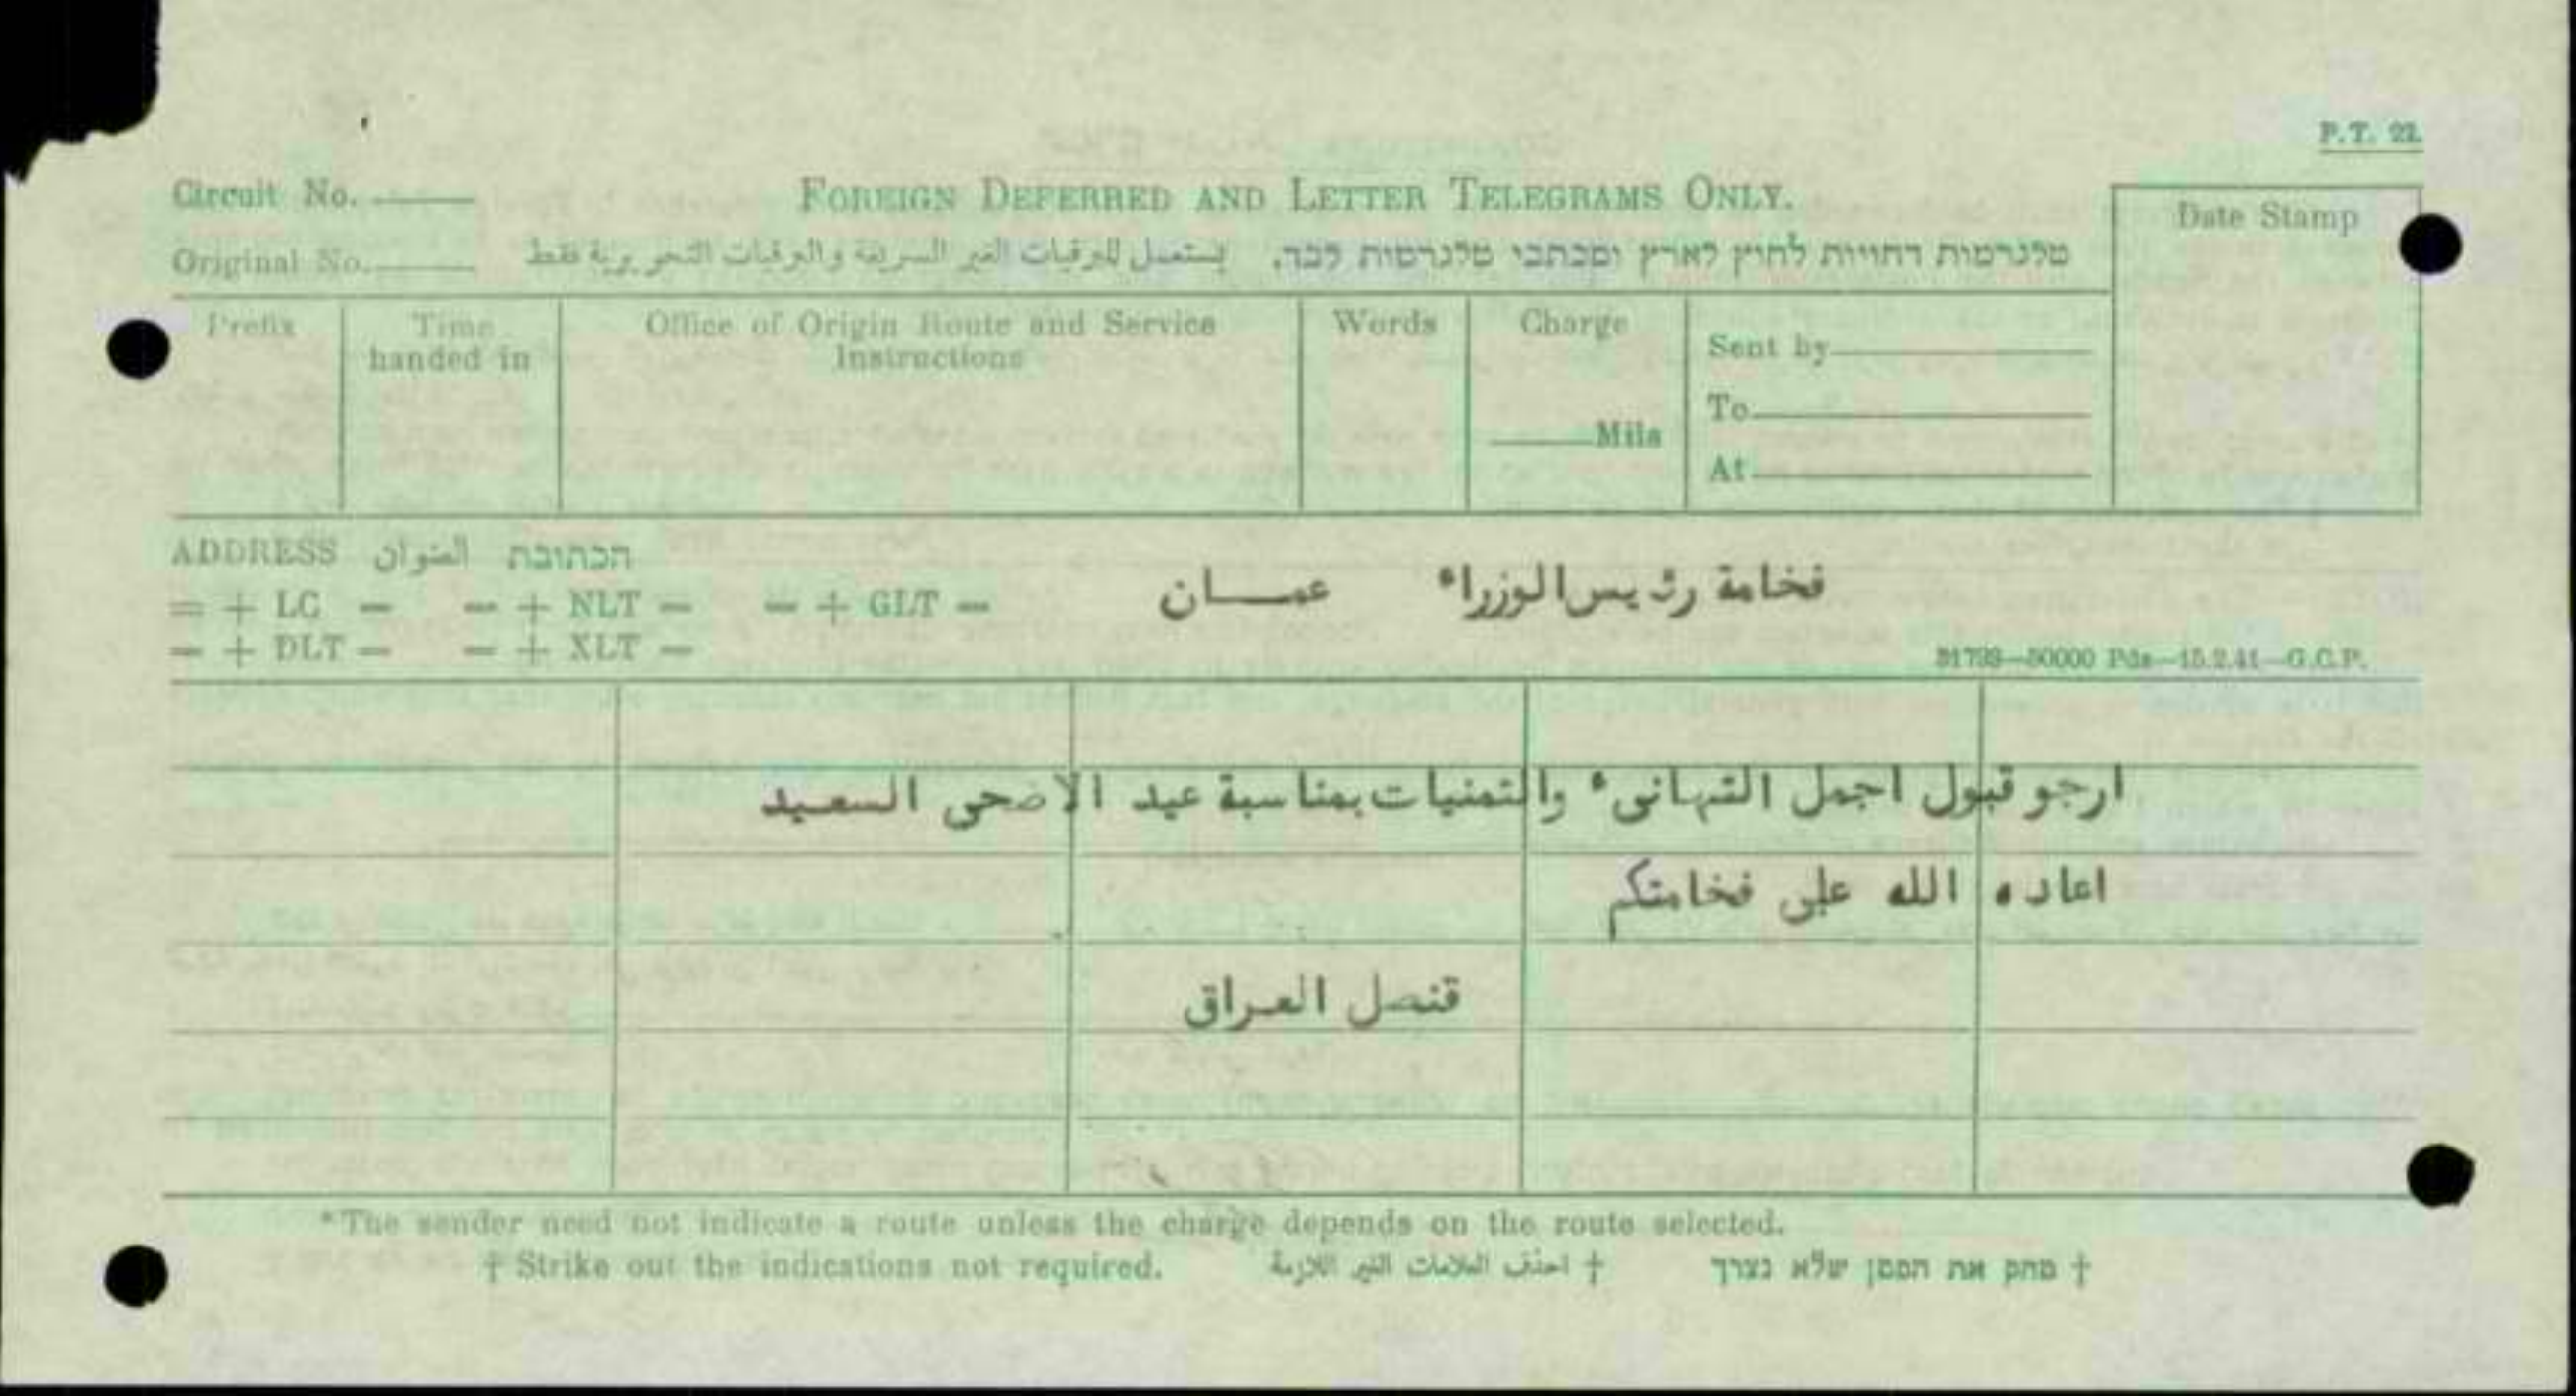 P.T. 22.
Circuit No.
FOREIGN DEFERRED AND LETTER TELEGRAMS ONLY.
Date Stamp
Original No.
يستعمل للبرقيات الغير السريعة والبرقيات التحريرية فقط
טלגרמות דחויות לחוץ לארץ ומכתבי טלגרמות לבד.
Prefix
Time handed in
Office of Origin Route and Service Instructions
Words
Charge
Mils
Sent by
To
At
ADDRESS العنوان הכתובת
= + LC — — + NLT — — + GLT —
— + DLT — — + XLT —
فخامة رئيس الوزراء عمــان
31733—50000 Pds—15.2.41—G.C.P.
ارجو قبول اجمل التهانىء والتمنيات بمناسبة عيد الاضحى السعيد
اعاده الله على فخامتكم
قنصل العراق
*The sender need not indicate a route unless the charge depends on the route selected.
† Strike out the indications not required. † احذف العلامات الغير اللازمة † מחק את הסמן שלא נצרך